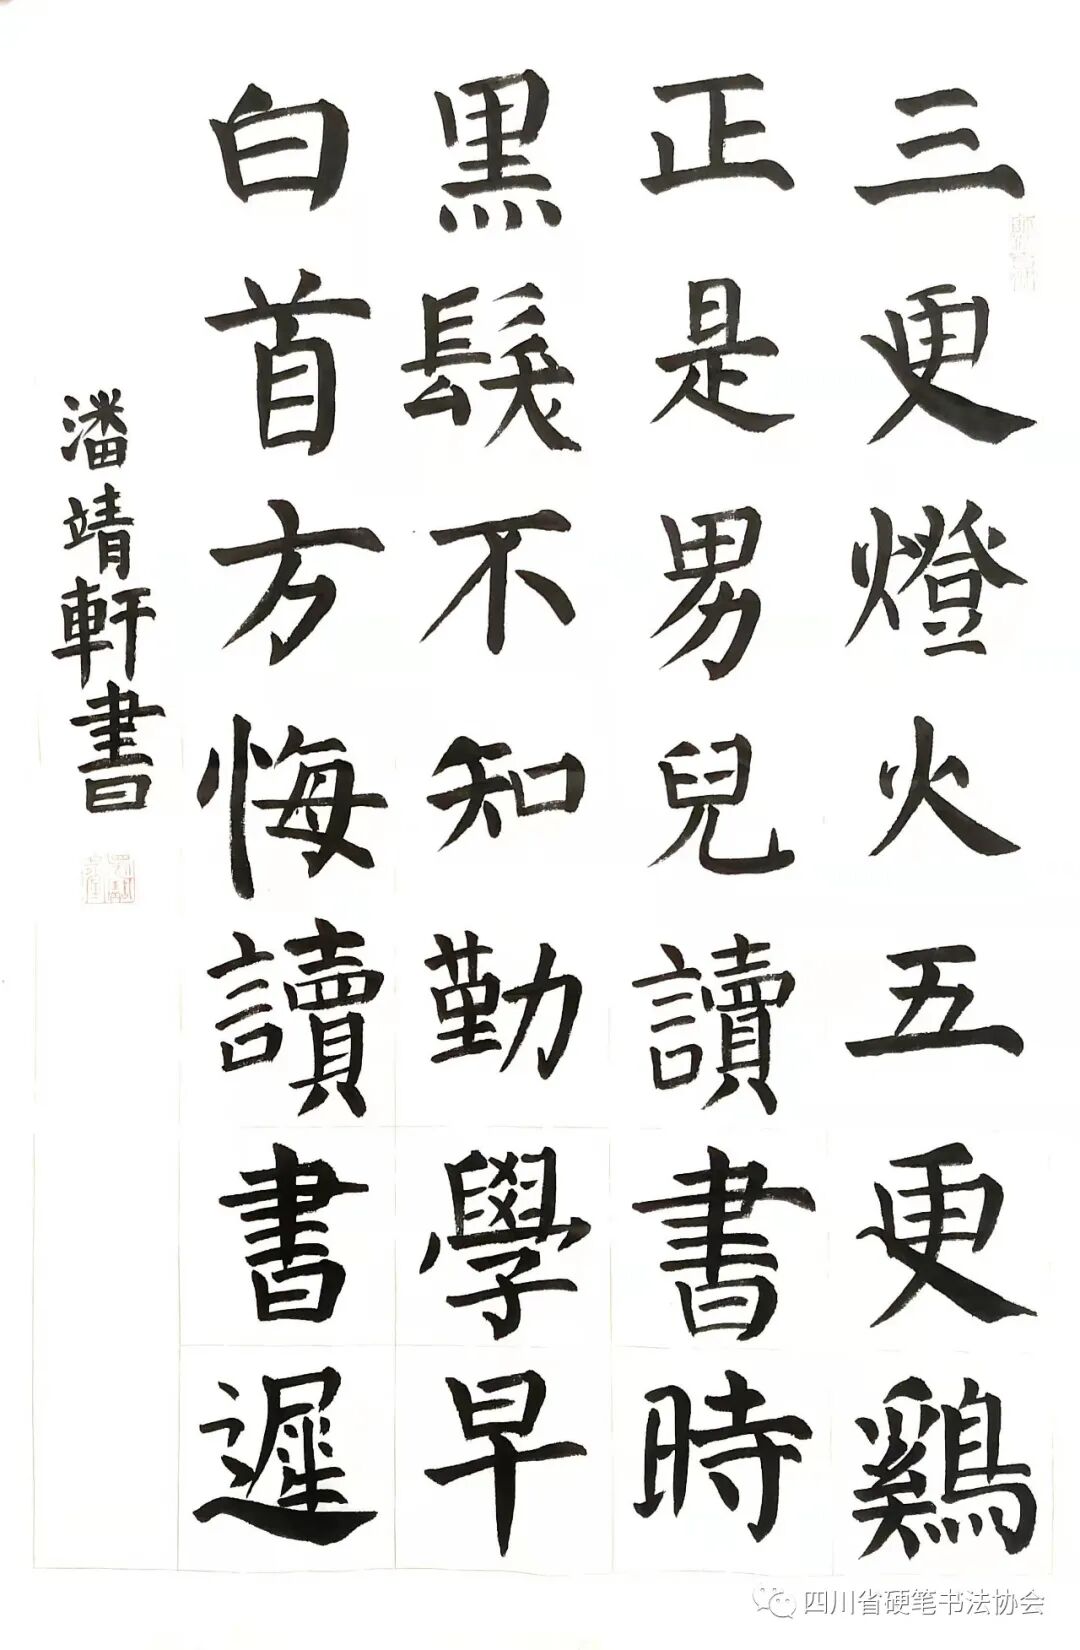 三更燈火五更鷄
正是男兒讀書時
黑髮不知勤學早
白首方悔讀書遲
潘靖軒書
四川省硬笔书法协会